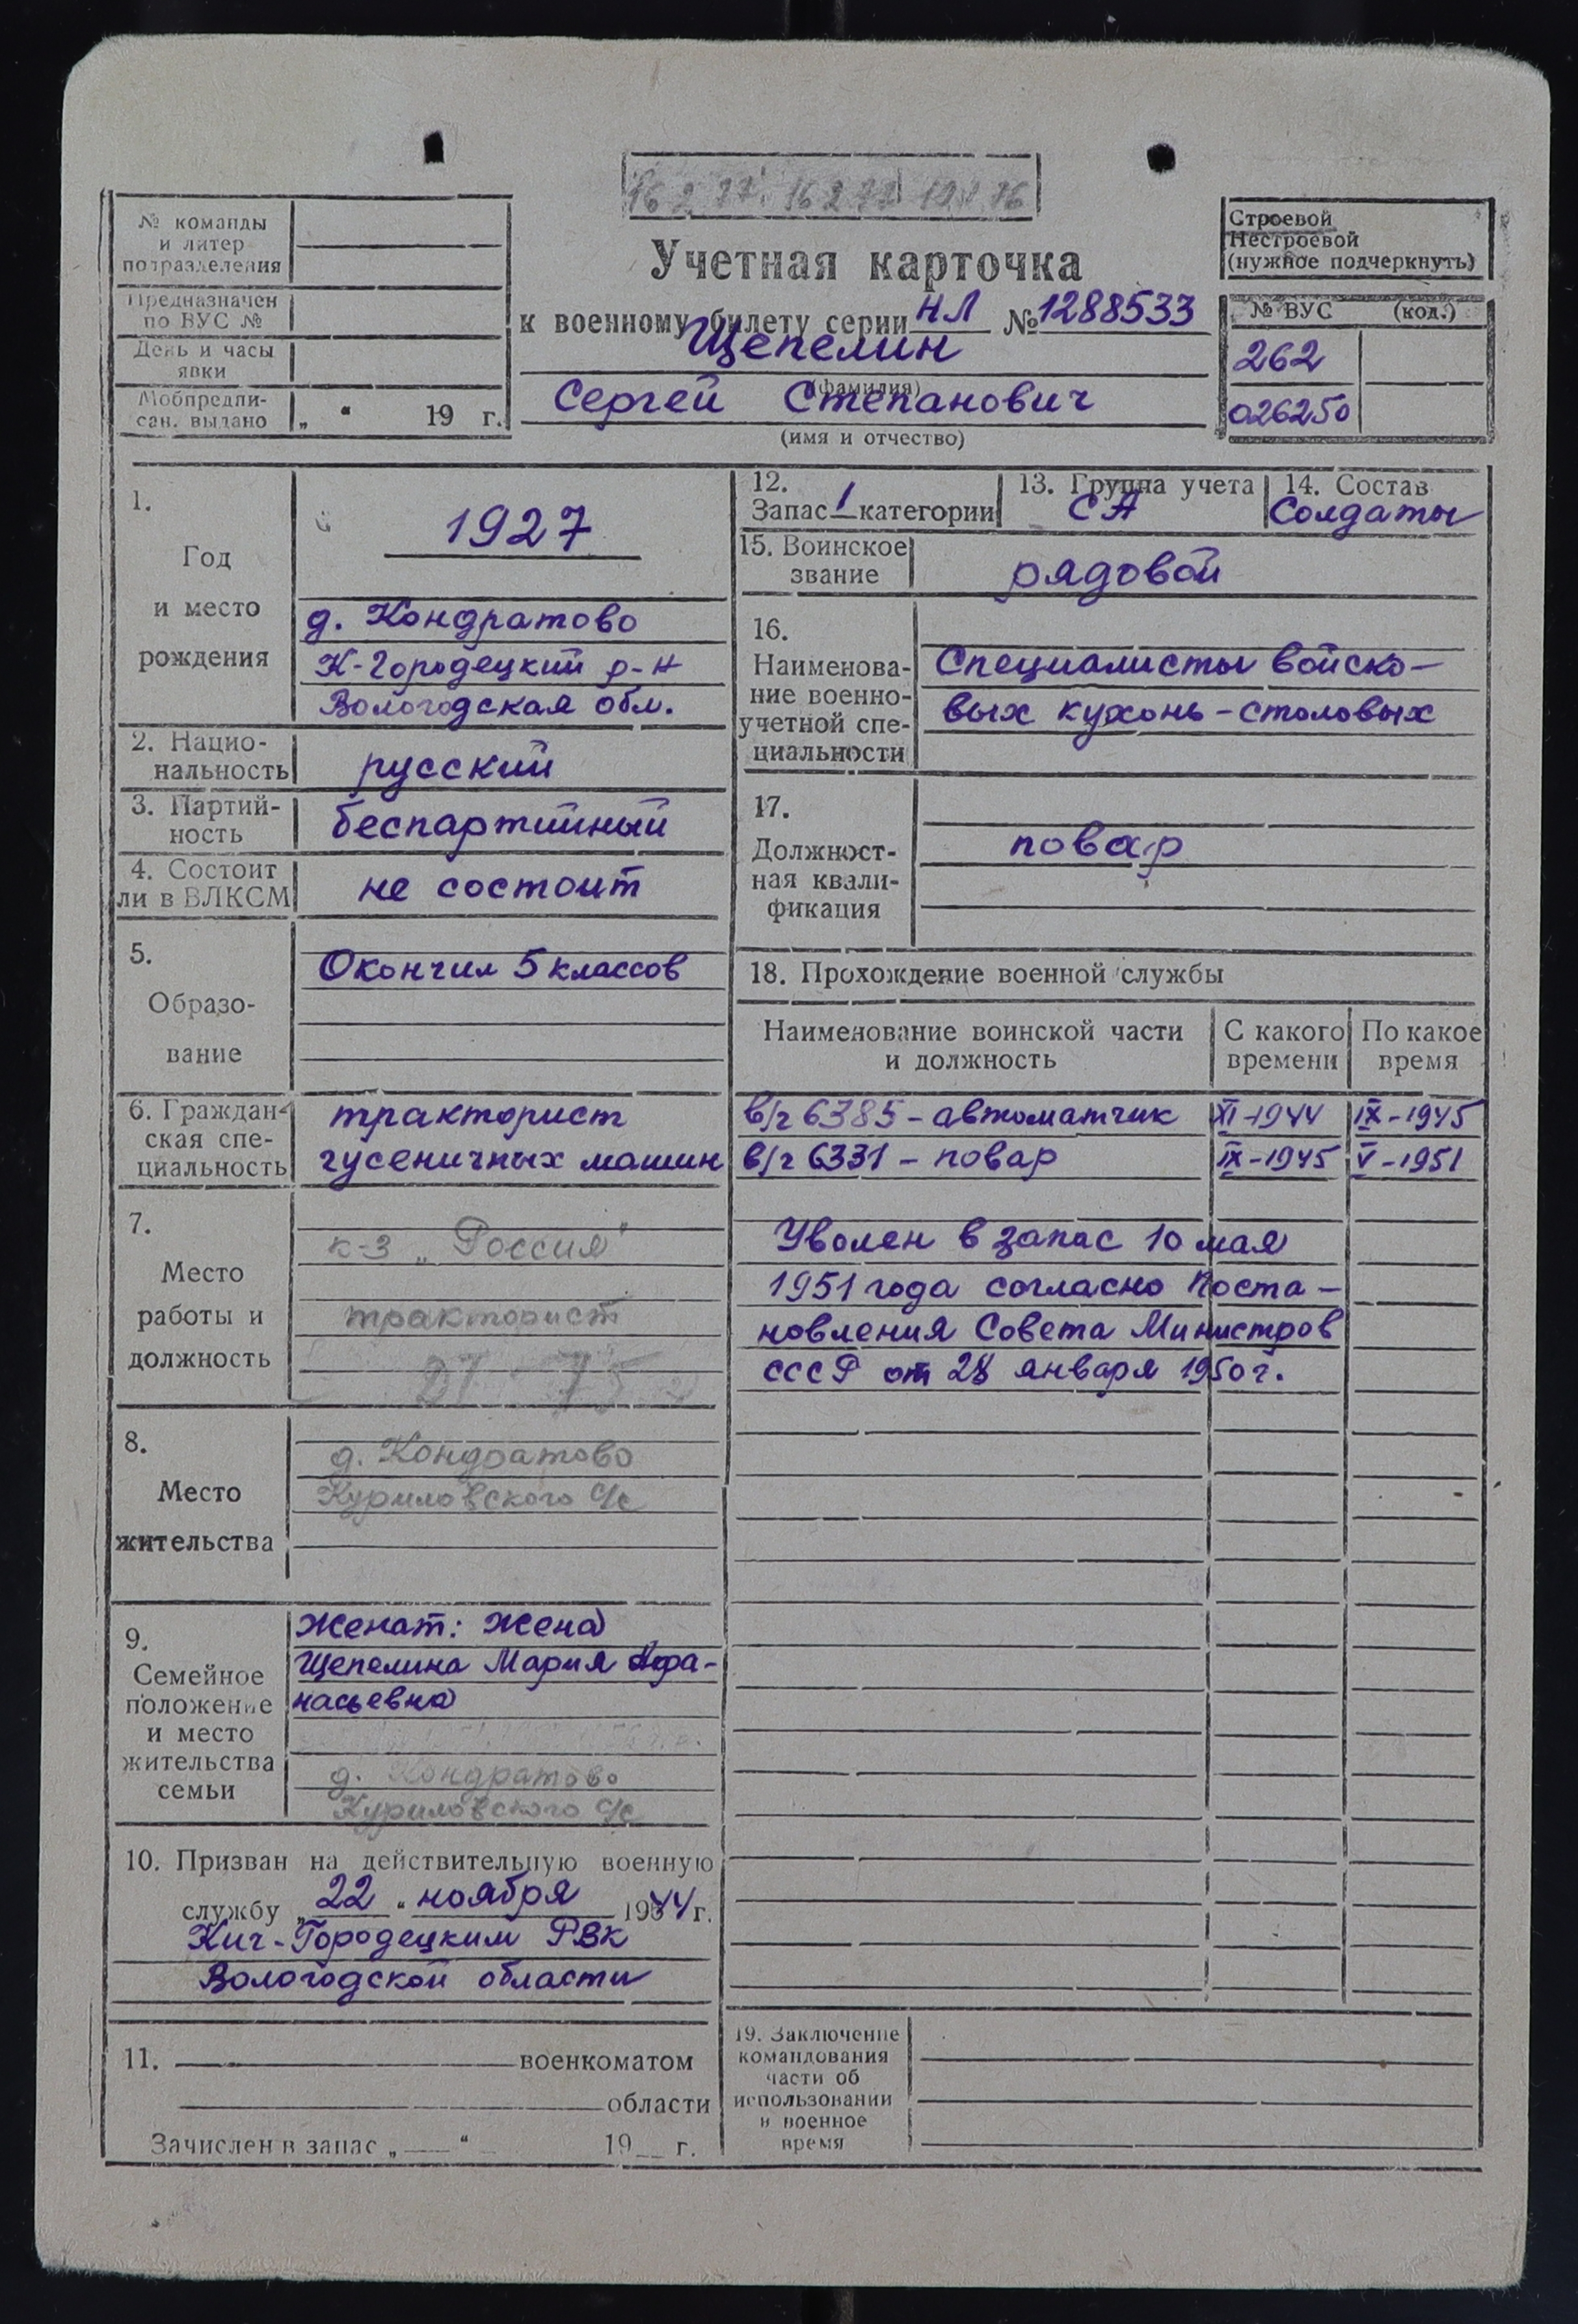 16 2 77
№ команды
и литер
подразделения
Предназначен
по ВУС №
День и часы
явки
Мобпредпи-
сан. выдано „ “ 19 г.
Учетная карточка
к военному билету серии НЛ № 1288533
Щепелин
(фамилия)
Сергей Степанович
(имя и отчество)
Строевой
Нестроевой
(нужное подчеркнуть)
№ ВУС (код.)
262
026250
1.
Год
и место
рождения
1927
д. Кондратово
К-Городецкий р-н
Вологодская обл.
2. Нацио-
нальность
русский
3. Партий-
ность
беспартийный
4. Состоит
ли в ВЛКСМ
не состоит
5.
Образо-
вание
Окончил 5 классов
6. Граждан-
ская спе-
циальность
тракторист
гусеничных машин
7.
Место
работы и
должность
к-з „Россия“
тракторист
8.
Место
жительства
д. Кондратово
Куриловского с/с
9.
Семейное
положение
и место
жительства
семьи
Женат: жена
Щепелина Мария Афа-
насьевна
д. Кондратово
Куриловского с/с
10. Призван на действительную военную
службу „22“ ноября 1944 г.
Кич-Городецким РВК
Вологодской области
11. военкоматом
области
Зачислен в запас „ “ 19 г.
12.
Запас 1 категории
13. Группа учета
СА
14. Состав
Солдаты
15. Воинское
звание
рядовой
16.
Наименова-
ние военно-
учетной спе-
циальности
Специалисты войско-
вых кухонь-столовых
17.
Должност-
ная квали-
фикация
повар
18. Прохождение военной службы
Наименование воинской части
и должность
С какого
времени
По какое
время
в/ч 6385 - автоматчик XI-1944 IX-1945
в/ч 6331 - повар IX-1945 V-1951
Уволен в запас 10 мая
1951 года согласно Поста-
новления Совета Министров
СССР от 28 января 1950 г.
19. Заключение
командования
части об
использовании
в военное
время